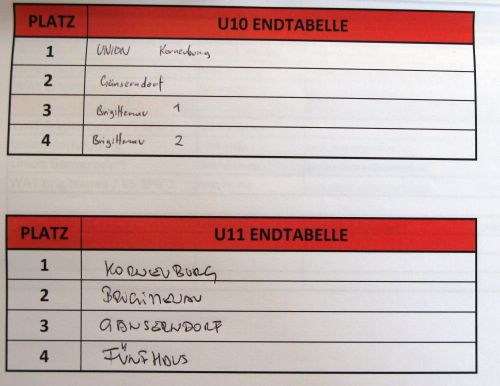 PLATZ U10 ENDTABELLE
1 UNION Korneuburg
2 Gänserndorf
3 Brigittenau 1
4 Brigittenau 2
PLATZ U11 ENDTABELLE
1 KORNEUBURG
2 BRIGITTENAU
3 GÄNSERNDORF
4 FÜNFHAUS